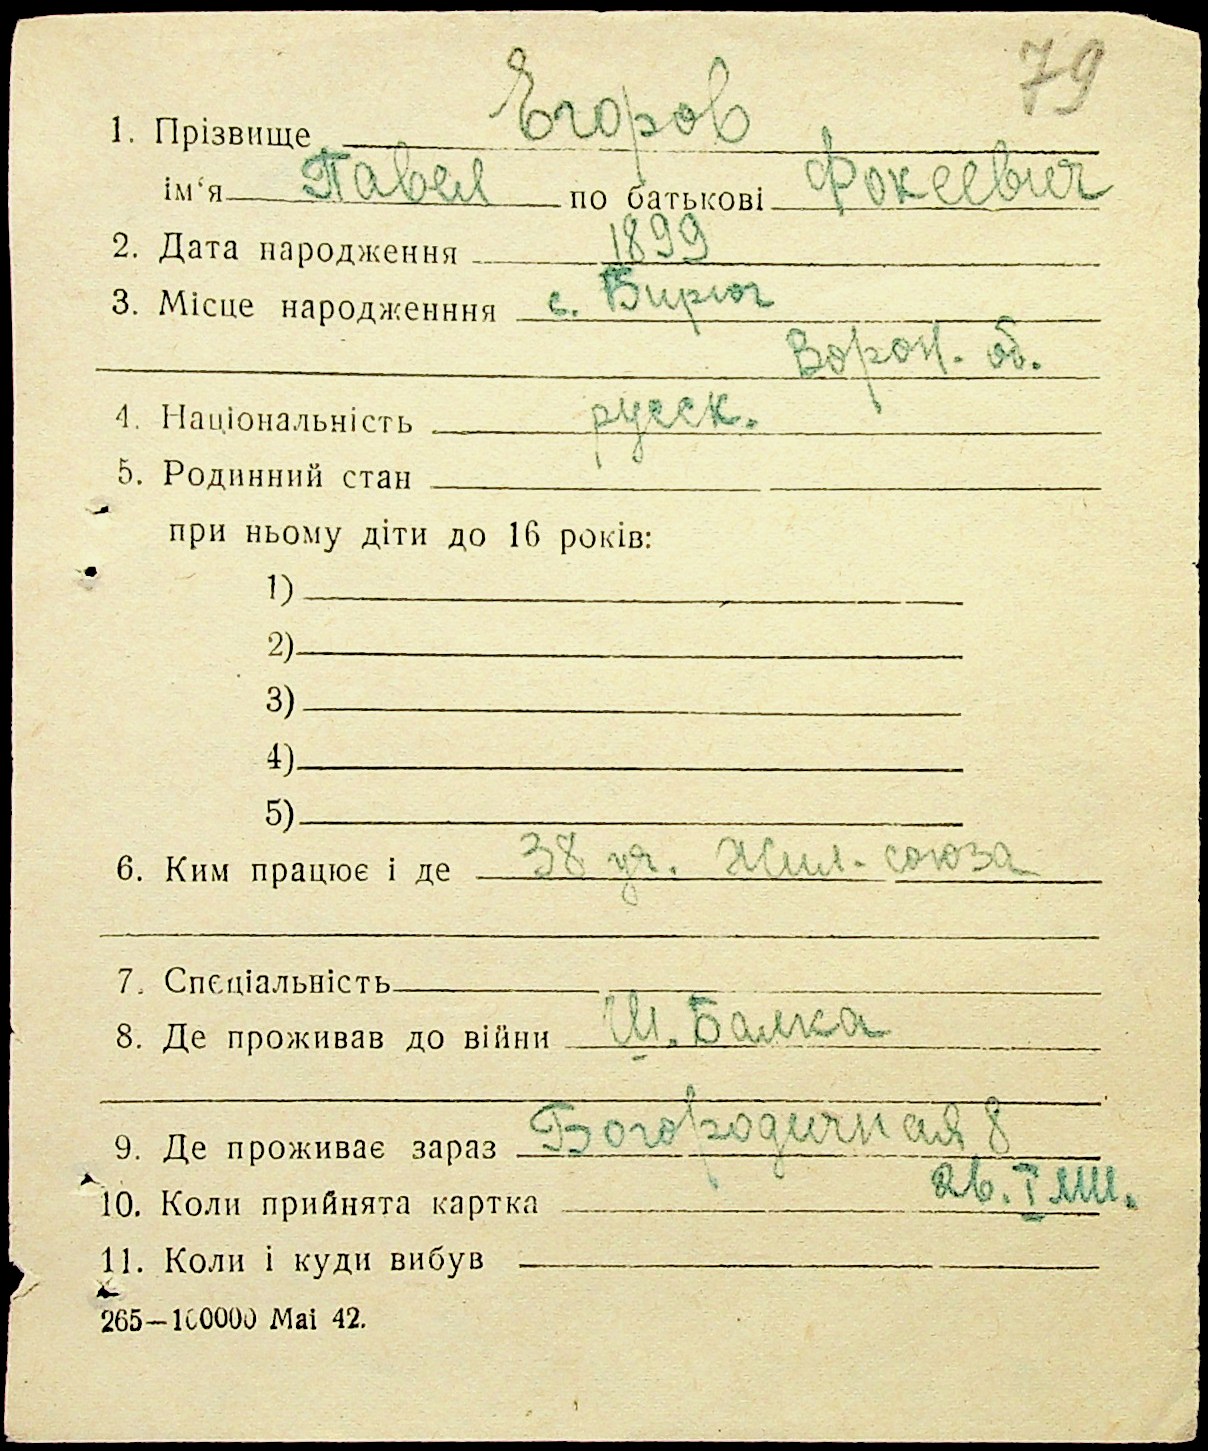 79
1. Прізвище Егоров
ім‘я Павел по батькові Фокеевич
2. Дата народження 1899
3. Місце народженння с. Бирюч
Ворон. об.
4. Національність русск.
5. Родинний стан
при ньому діти до 16 років:
1)
2)
3)
4)
5)
6. Ким працює і де 38 уч. Жил-союза
7. Спеціальність
8. Де проживав до війни Ш. Балка
9. Де проживає зараз Богородичная 8
10. Коли прийнята картка
11. Коли і куди вибув
265—100000 Mai 42.